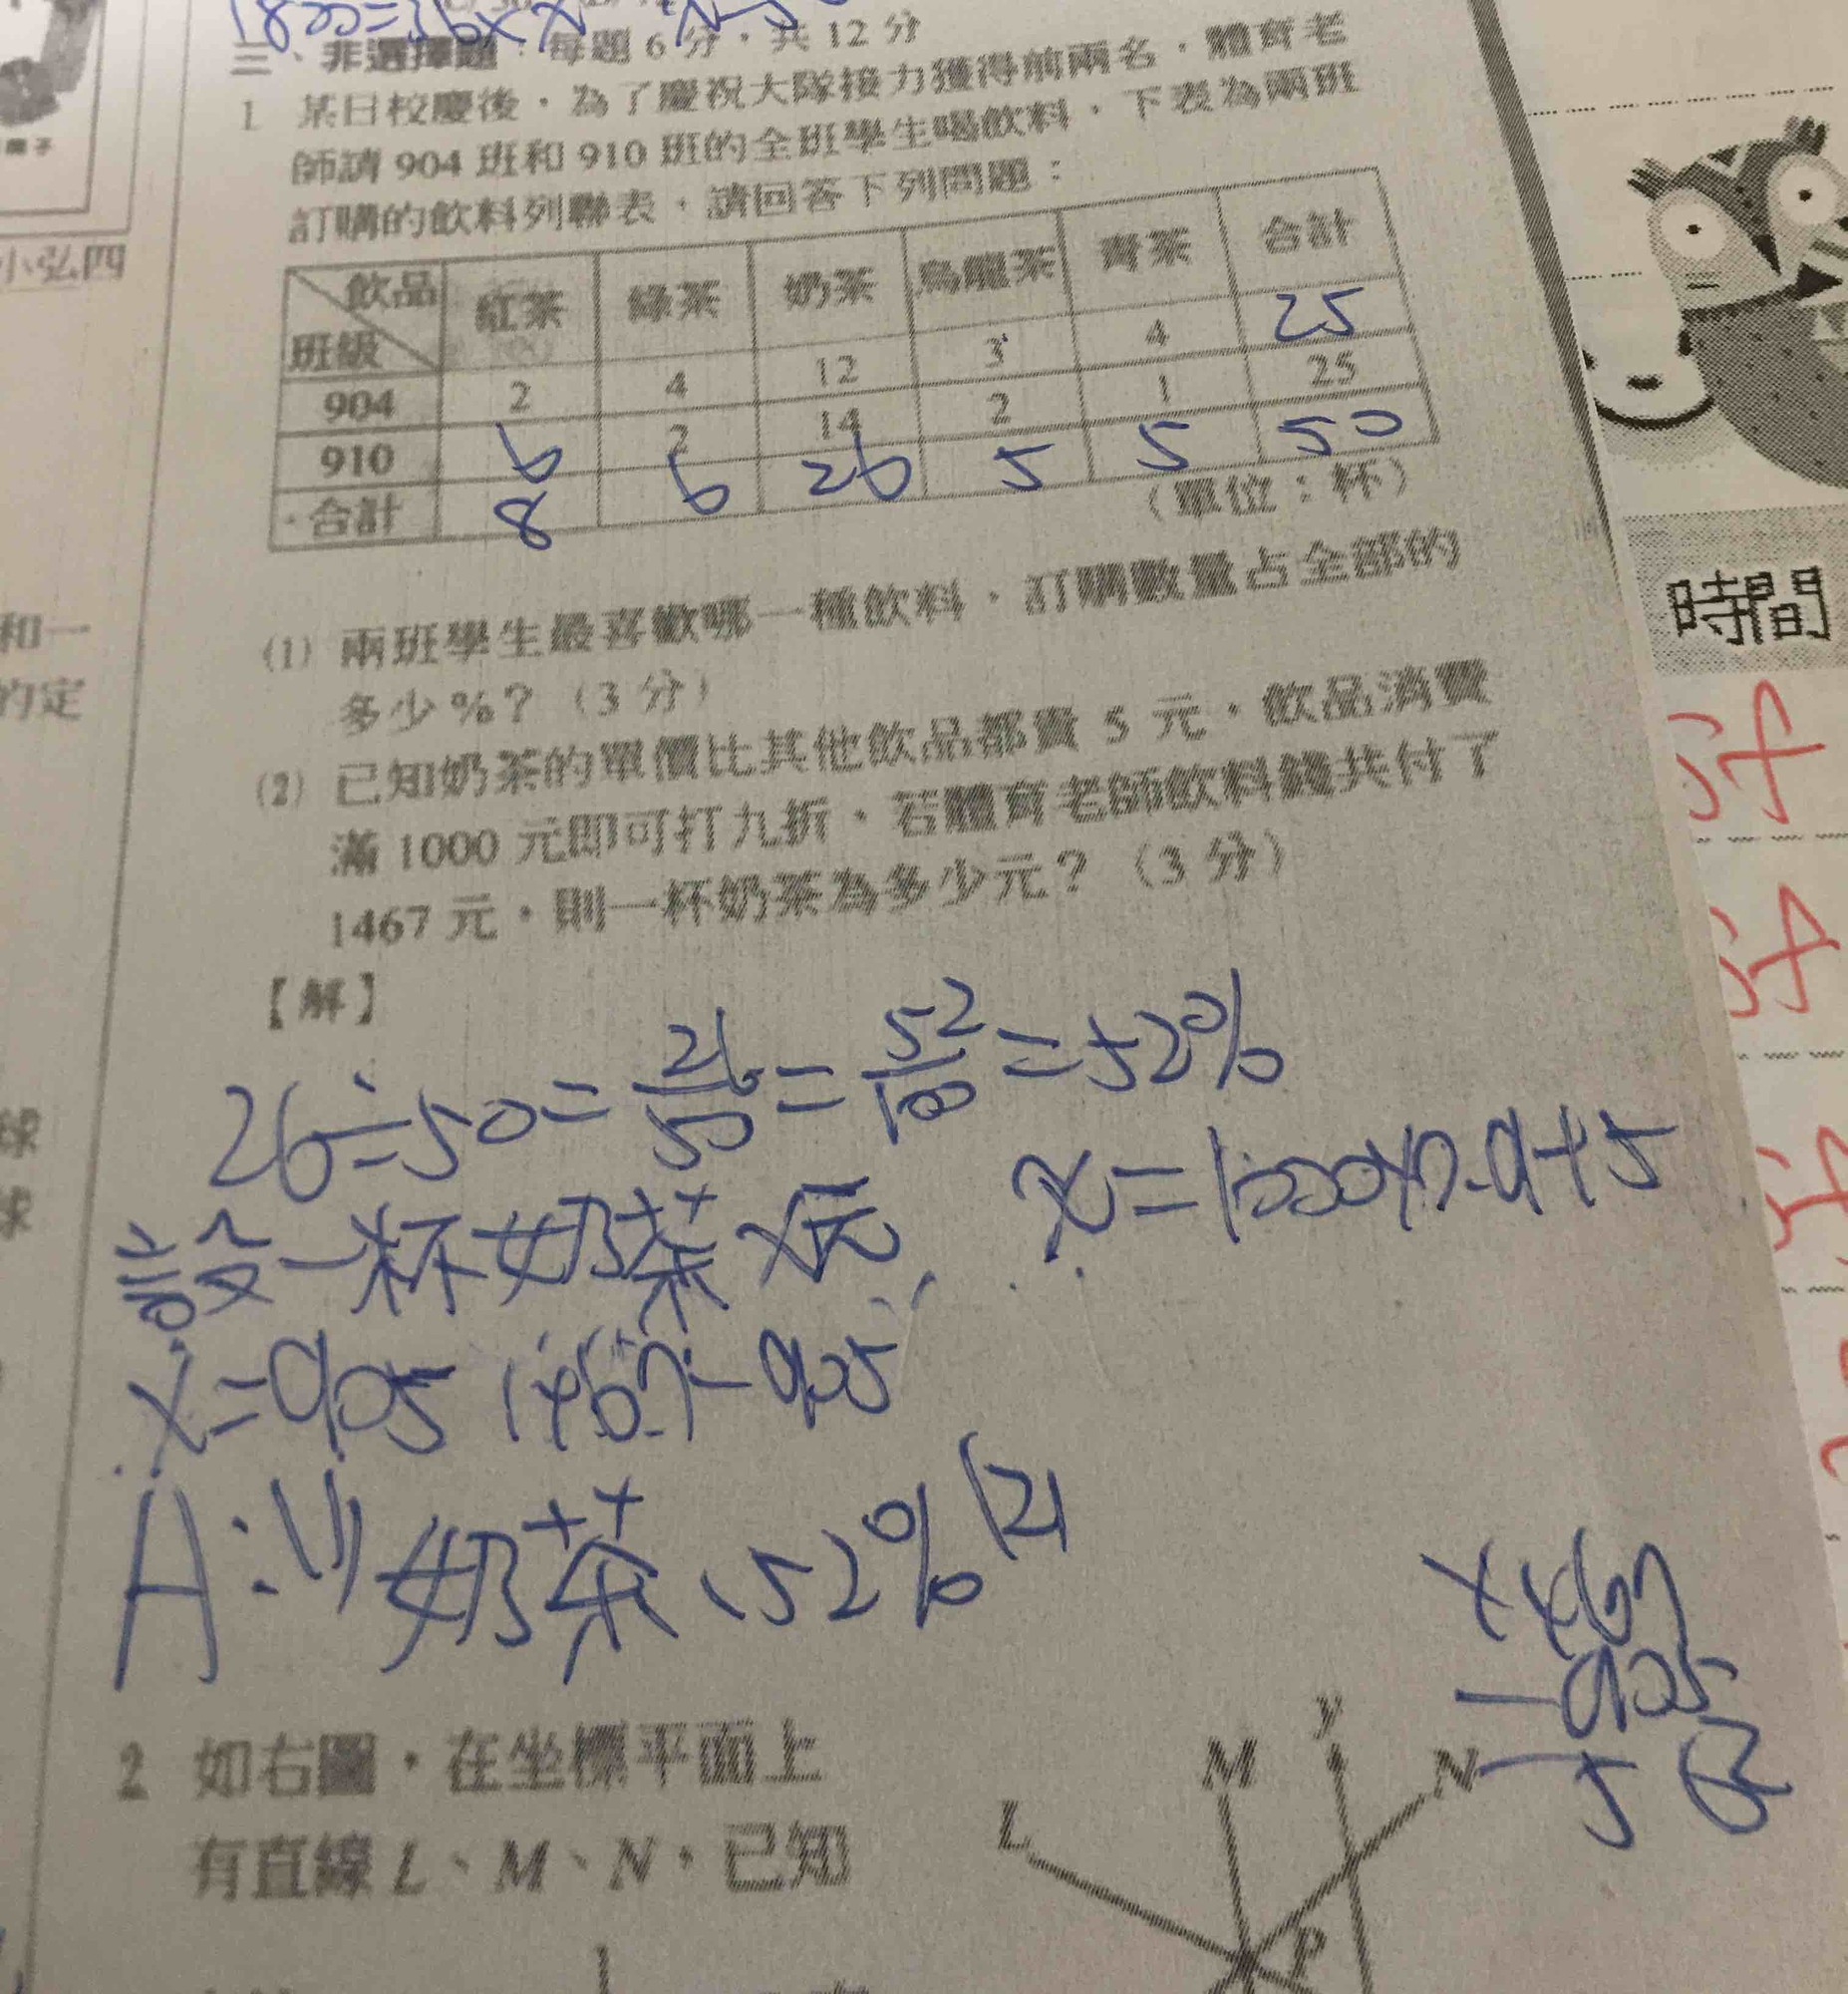 1800=36×x
三、非選擇題：每題 6 分，共 12 分
1 某日校慶後，為了慶祝大隊接力獲得前兩名，體育老
師請 904 班和 910 班的全班學生喝飲料，下表為兩班
訂購的飲料列聯表，請回答下列問題：
飲品 班級 紅茶 綠茶 奶茶 烏龍茶 青茶 合計
904 2 4 12 3 4 25
910 6 2 14 2 1 25
合計 8 6 26 5 5 50
（單位：杯）
(1) 兩班學生最喜歡哪一種飲料，訂購數量占全部的
多少%？（3 分）
(2) 已知奶茶的單價比其他飲品都貴 5 元，飲品消費
滿 1000 元即可打九折，若體育老師飲料錢共付了
1467 元，則一杯奶茶為多少元？（3 分）
【解】
26÷50=26/50=52/100=52%
設一杯奶茶x元
x=1000×0.9+5
x=905 1467-905
A:(1)奶茶、52%(2)
1467
-905
562
2 如右圖，在坐標平面上
有直線 L、M、N，已知
L
M
y
N
P
小弘四
和一
的定
線
求
時間